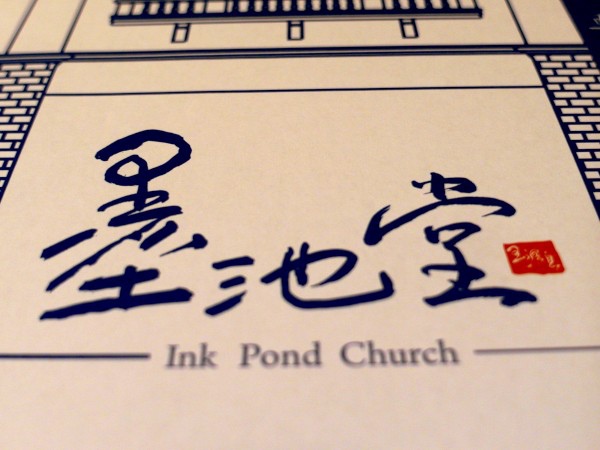 墨池堂
Ink Pond Church